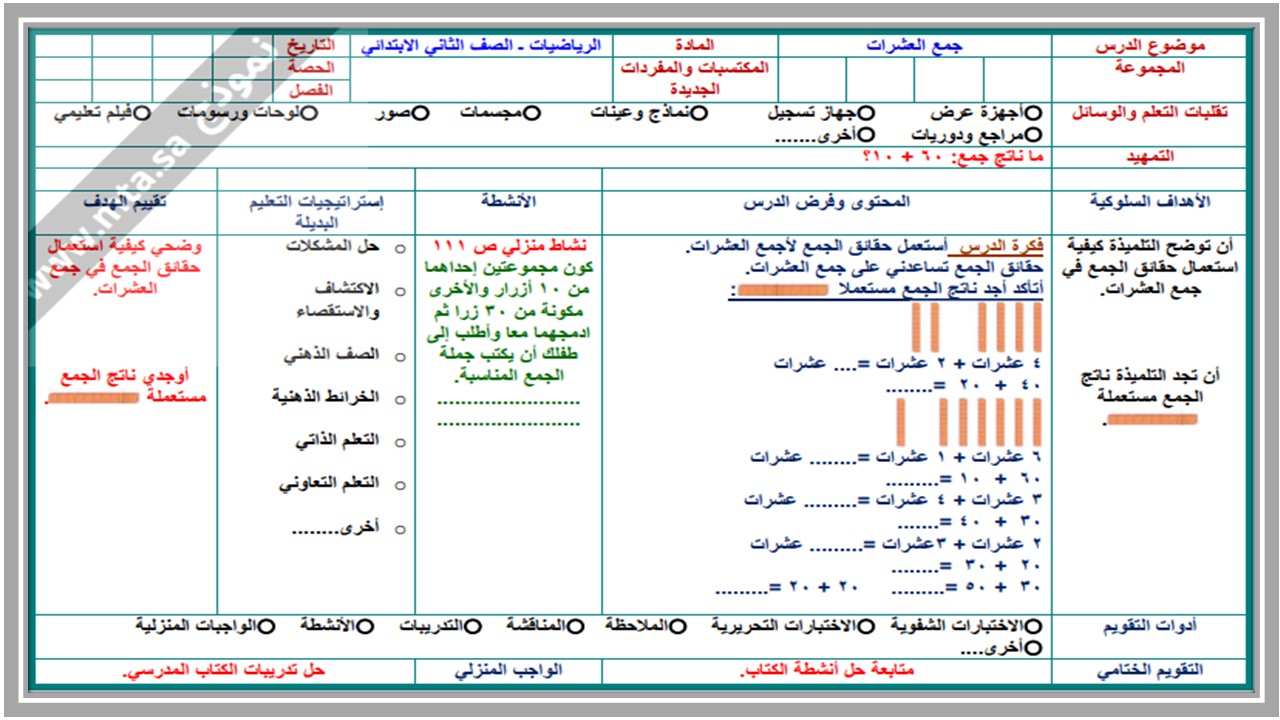 موضوع الدرس جمع العشرات المادة الرياضيات ـ الصف الثاني الابتدائي التاريخ
المجموعة المكتسبات والمفردات الجديدة الحصة
الفصل
تقلبات التعلم والوسائل أجهزة عرض جهاز تسجيل نماذج وعينات مجسمات صور لوحات ورسومات فيلم تعليمي
مراجع ودوريات أخرى.......
التمهيد ما ناتج جمع: ٦٠ + ١٠؟
الأهداف السلوكية المحتوى وفرض الدرس الأنشطة إستراتيجيات التعليم البديلة تقييم الهدف
أن توضح التلميذة كيفية
استعمال حقائق الجمع في
جمع العشرات.
أن تجد التلميذة ناتج
الجمع مستعملة
.
فكرة الدرس أستعمل حقائق الجمع لأجمع العشرات.
حقائق الجمع تساعدني على جمع العشرات.
أتأكد أجد ناتج الجمع مستعملا :
٤ عشرات + ٢ عشرات =.... عشرات
٤٠ + ٢٠ =........
٦ عشرات + ١ عشرات =........ عشرات
٦٠ + ١٠ =.........
٣ عشرات + ٤ عشرات =......... عشرات
٣٠ + ٤٠ =.......
٢ عشرات + ٣عشرات =......... عشرات
٢٠ + ٣٠ =........
٣٠ + ٥٠ =......... ٢٠ + ٢٠ =.........
نشاط منزلي ص ١١١
كون مجموعتين إحداهما
من ١٠ أزرار والأخرى
مكونة من ٣٠ زرا ثم
ادمجهما معا وأطلب إلى
طفلك أن يكتب جملة
الجمع المناسبة.
........................
........................
حل المشكلات
الاكتشاف
والاستقصاء
الصف الذهني
الخرائط الذهنية
التعلم الذاتي
التعلم التعاوني
أخرى........
وضحي كيفية استعمال
حقائق الجمع في جمع
العشرات.
أوجدي ناتج الجمع
مستعملة .
أدوات التقويم الاختبارات الشفوية الاختبارات التحريرية الملاحظة المناقشة التدريبات الأنشطة الواجبات المنزلية
أخرى....
التقويم الختامي متابعة حل أنشطة الكتاب. الواجب المنزلي حل تدريبات الكتاب المدرسي.
نموذج www.mta.sa